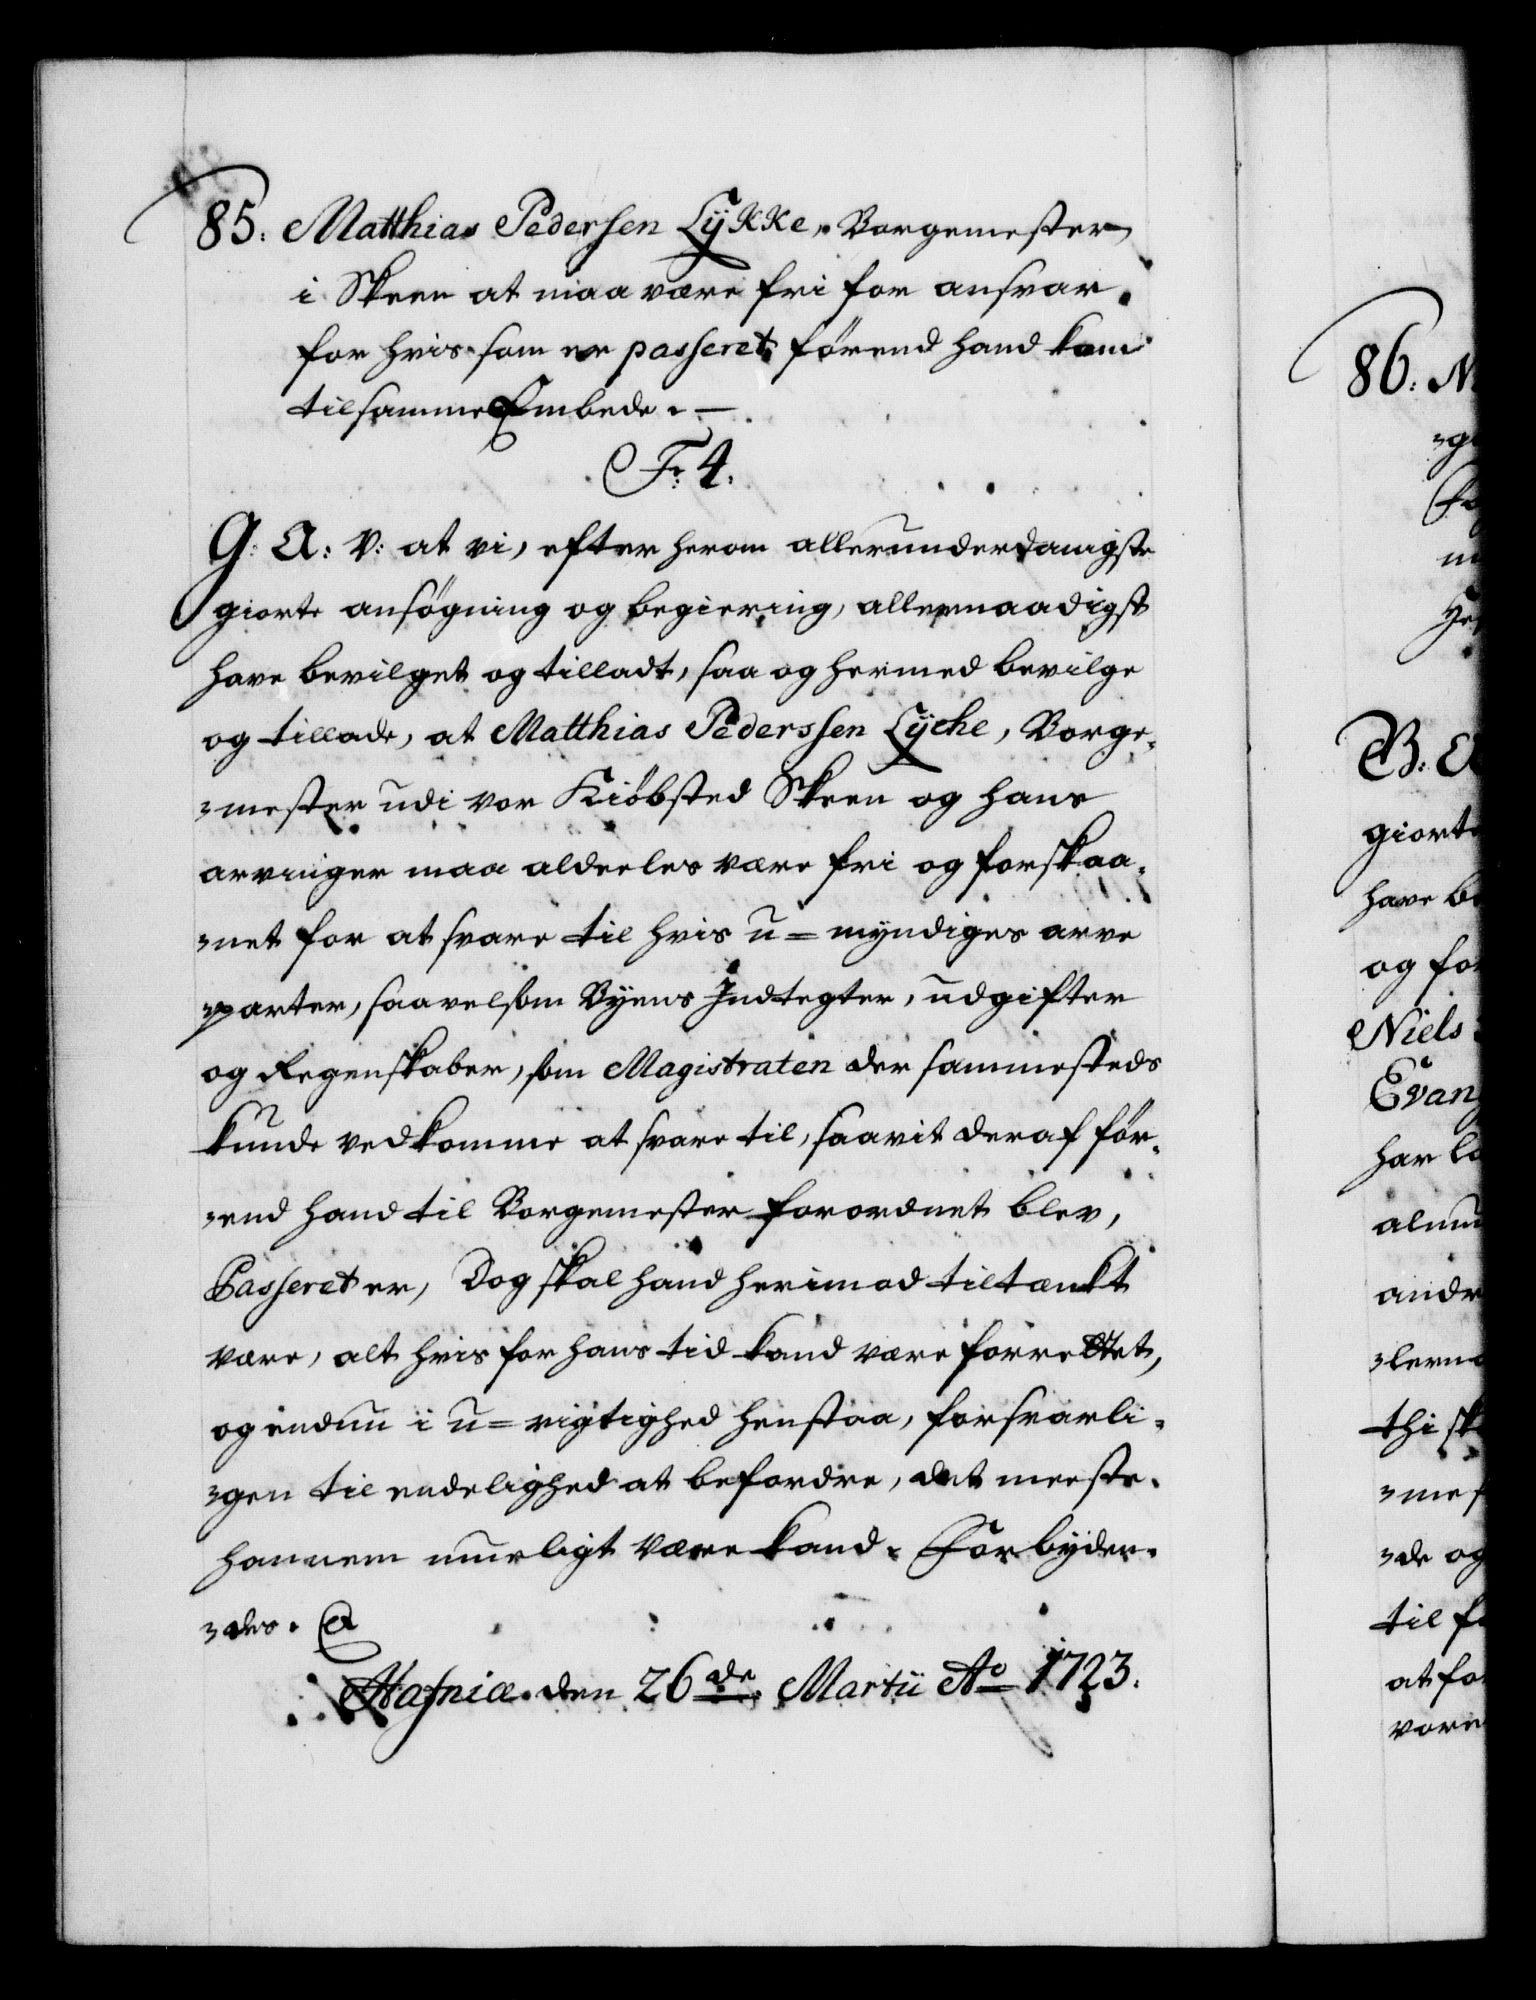 85. Matthias Pedersen Lÿkke, Borgemester
i Skeen at maa være fri for ansvar
for hvis som er passeret, førend hand kom
til samme Embede. –
F: 4.
G: A: V: at vi, efter herom allerunderdanigste
giorte ansøgning og begiering, allernaadigst
have bevilget og tilladt, saa og hermed bevilge
og tillade, at Matthias Pederssen Lÿche, Borge-
-mester udi vor Kiöbsted Skeen og hans
arvinger maa aldeeles være fri og forskaa-
-net for at svare til hvis u=myndiges arve
-parter, saavelsom Byens Indtegter, udgifter
og Regenskaber, som Magistraten der sammesteds
kunde vedkomme at svare til, saavit deraf før-
-end hand til Borgemester forordnet blev,
Passeret er, Dog skal hand herimod tiltænkt
være, alt hvis for hans tid kand være forrettet,
og endnu i u=rigtighed henstaa, forsvarli-
-gen til endelighed at befordre, det meeste
hannem mueligt være kand. Forbyden-
-des. &
Hafniæ. den 26de Martii Ao 1723.
86. M
-ge
giorte
have be
og for
Niels
Evan
har la
andr
thi sk
-me f
-de og
til f
at fo
vore